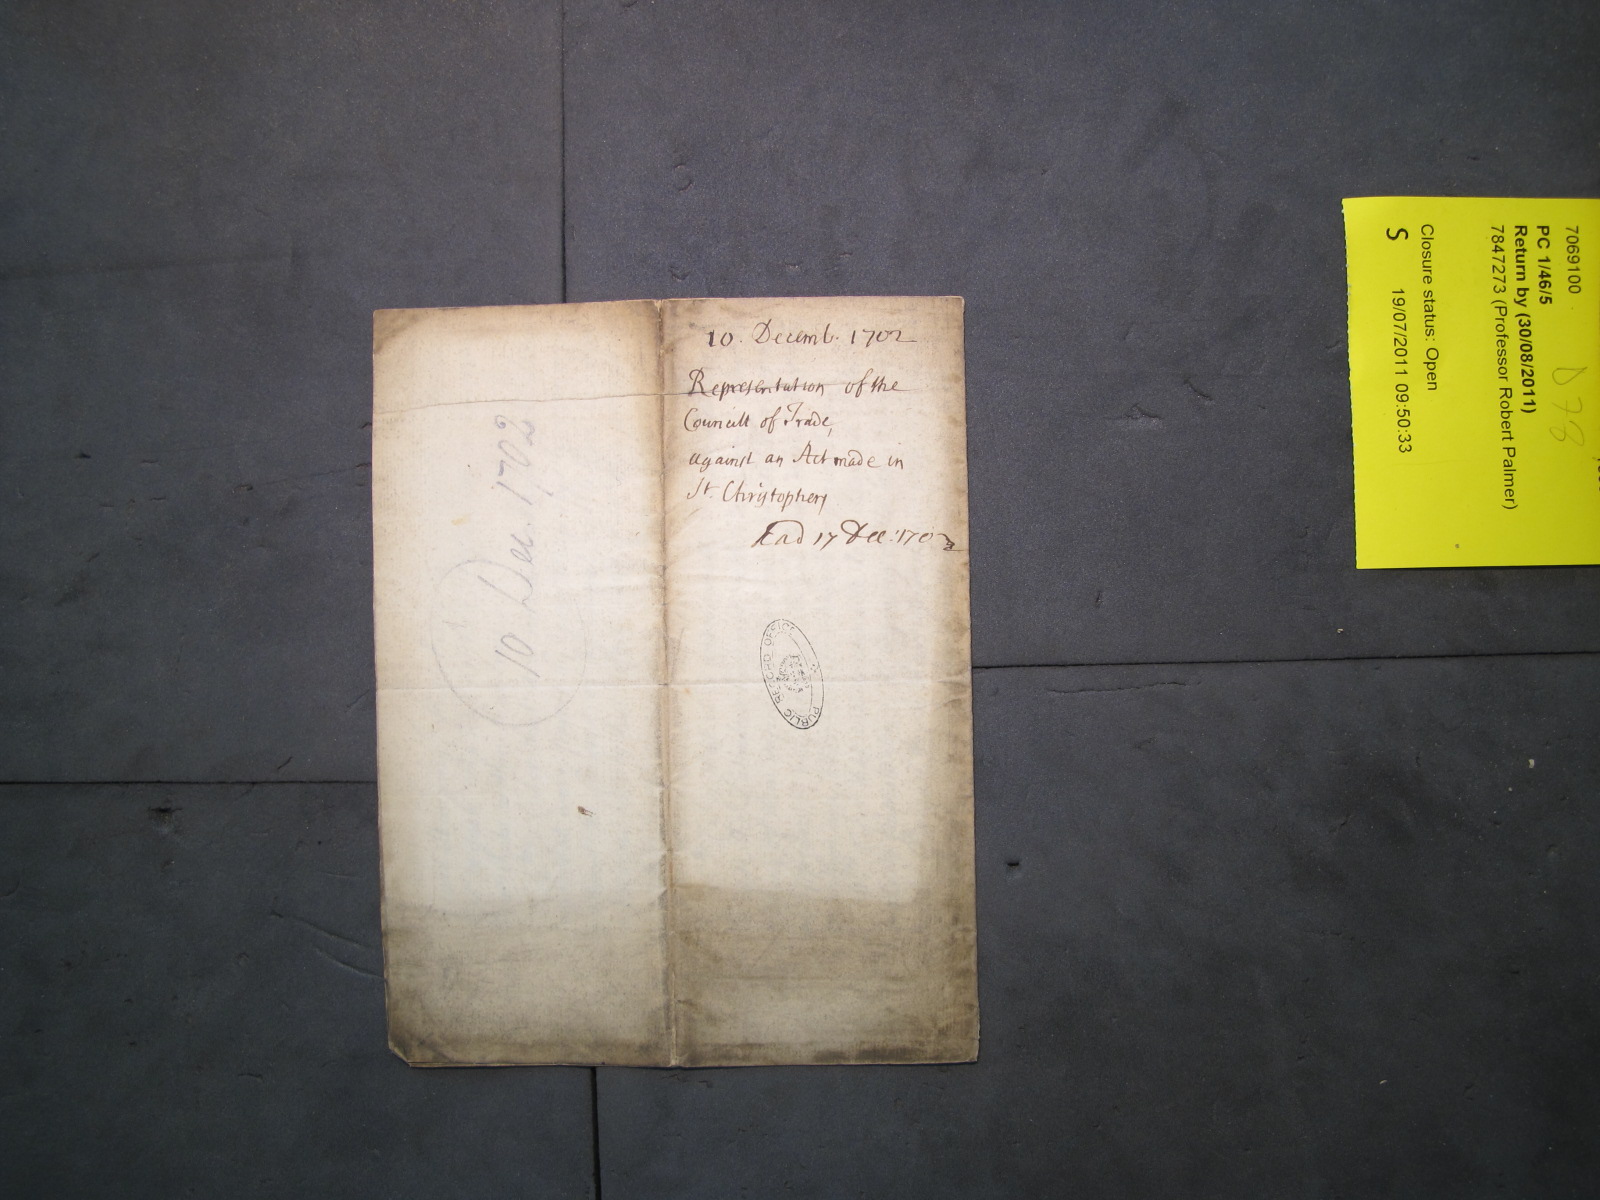 10. Decemb. 1702
Representation of the
Councill of Trade,
against an Act made in
St. Christophers
Ead 17 Dec: 1702
10 Dec. 1702
PUBLIC RECORD OFFICE
7069100
PC 1/46/5
Return by (30/08/2011)
7847273 (Professor Robert Palmer)
Closure status: Open
S 19/07/2011 09:50:33